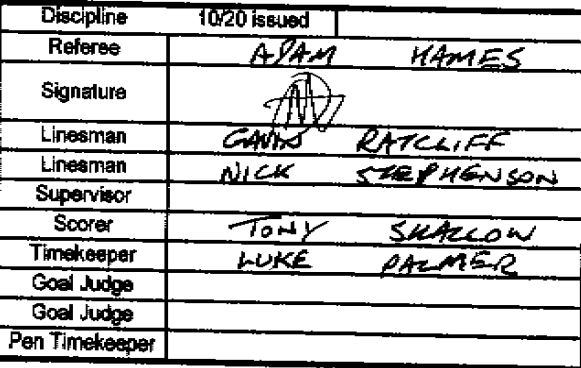 Discipline 10/20 issued
Referee ADAM HAMES
Signature
Linesman GAVIN RATCLIFF
Linesman NICK STEPHENSON
Supervisor
Scorer TONY SHALLOW
Timekeeper LUKE PALMER
Goal Judge
Goal Judge
Pen Timekeeper